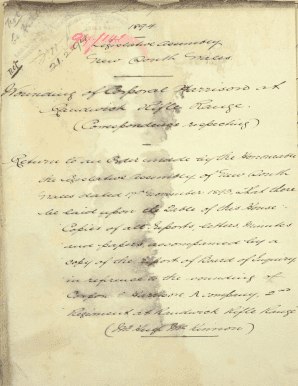 1894.
21.2.94
Legislative Assembly
New South Wales
Wounding of Corporal Harrison at
Randwick Rifle Range.
(Correspondence respecting)
Return to an Order made by the Honourable
the Legislative Assembly of New South
Wales dated November 1893, that there
be laid upon the Table of this House
Copies of all Reports, letters, minutes
and papers, accompanied by a
copy of the Report of Board of Inquiry
in reference to the wounding of
Harrison Company, 2nd
Regiment at Randwick Rifle Range
(Mr. Hugh McKinnon)